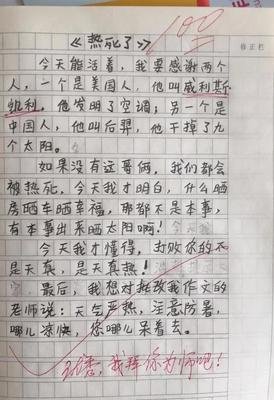 100
《热死了》
修正栏
今天能活着，我要感谢两个
人，一个是美国人，他叫威利斯
凯利。他发明了空调；另一个是
中国人，他叫后羿，他干掉了九
个太阳。
如果没有这哥俩，我们都会
被热死。今天我才明白，什么晒
房晒车晒幸福，那都不是本事，
有本事出来晒太阳啊！
今天我才懂得，打败你的不
是天真，是天真热！
最后，我想对批改我作文的
老师说：天气严热，注意防暑，
哪儿凉快，您哪儿呆着去。
我拜你为师吧！